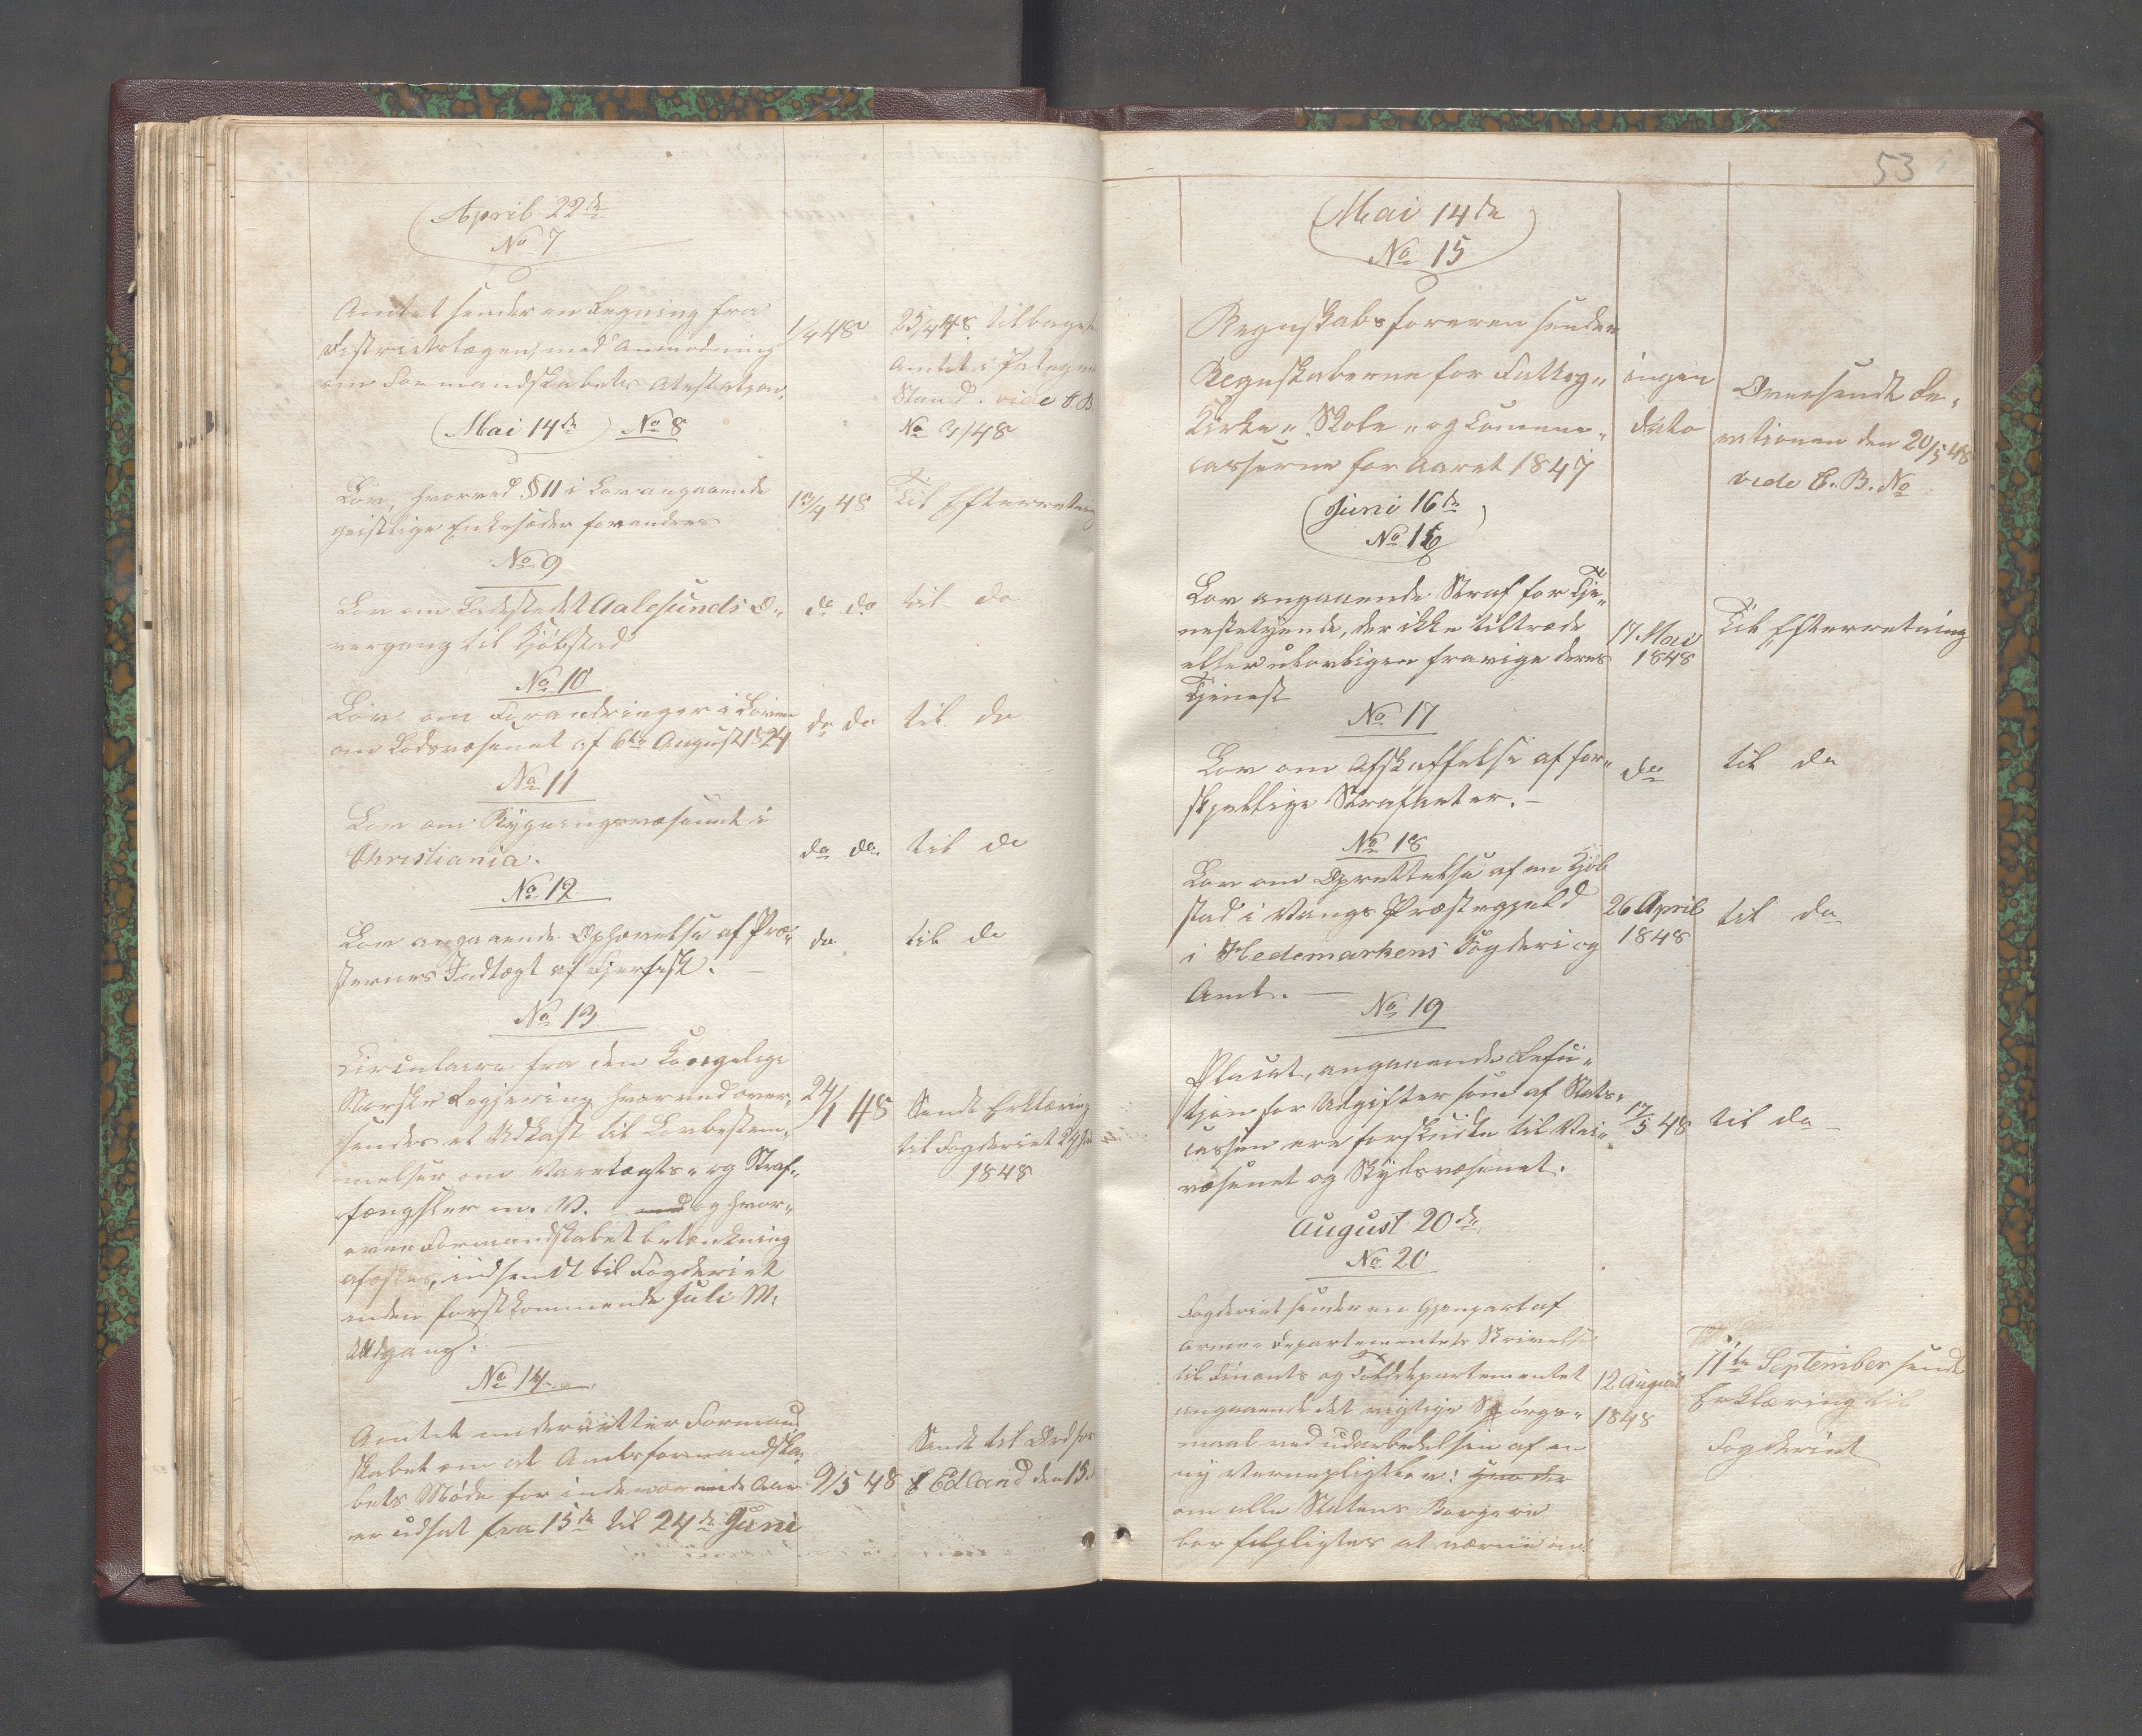 April 22de
No 7
Amtet sender en Regning fra
Districtslægen, med Anmodning
om Formandskabets Atestation,
1/4 48
25/4 48 tilbagesendt
Amtet i Paategnet
Stand. vide C. B.
No 3/48
Mai 14de No 8
Lov, hvorved § 11 i Lov angaaende
geistlige Enkesæder forandres
13/4 48
Til Efterretning
No 9
Lov om Ladestedet Aalesunds O-
vergang til Kjöbstad
do do
til do
No 10
Lov om Forandringer i Loven
om Lodsvæsenet af 6te August 1824
do do
til do
No 11
Lov om Bygningsvæsenet i
Christiania.
do do
til do
No 12
Lov angaaende Ophævelse af Præ-
sternes Indtægt af Fjerfisk. —
do
til do
No 13
Circulaire fra den Kongelige
Norske Regjering hvorved over-
sendes et Udkast til Lovbestem-
melser om Varetægts- og Straf-
fængsler m. V. og hvor-
over Formandskabet betænkning
afæskes, indsendt til Fogderiet
inden forstkommende Juli M:
Udgang. —
24/4 48
Sendt Erklæring
til Fogderiet
1848
No 14
Amtet underretter Formand
skabet om at Amtsformandska-
bets Möde for indeværende Aar
er udsat fra 15de til 24de Juni
9/5 48
Sendt til Ordför
E Edland den 15.
53
Mai 14de
No 15
Regnskabsföreren sender
Regnskaberne for Fattig-
Kirke- Skole- og Commune-
casserne for Aaret 1847
ingen
Dato
Oversendt Re-
visionen den 20/5 48
vide C. B. No
Juni 16de
No 16
Lov angaaende Straf for Tje-
nestetyende, der ikke tiltræde
eller ulovligen fravige deres
Tjeneste
17 Mai
1848
Til Efterretning
No 17
Lov om Afskaffelse af for-
skjellige Strafarter. —
do
til do
No 18
Lov om Oprettelse af en Kjöb
stad i Vangs Præstegjeld
i Hedemarkens Fogderi og
Amt. —
26 April
1848
til do
No 19
Placat, angaaende Refu-
sjon for Udgifter som af Stats-
cassen ere forskudte til Vei-
væsenet og Skydsvæsenet.
17/5 48
til do —
August 20de
No 20
Fogderiet sender en Gjenpart af
Armee-Departementets Skrivelse
til Finants og Tolddepartementet
angaaende det vigtige Spörgs-
maal ved Udarbeidelsen af en
ny Vernepligtlov:
om alle Statens Borgere
bor forpligtes at værne om
12 August
1848
11te September sendt
Erklæring til
Fogderiet